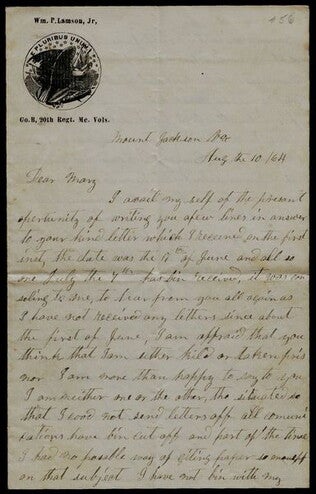 Wm. P. Lamson, Jr,
456
E PLURIBUS UNUM
Co. B, 20th Regt. Me. Vols.
Mount Jackson
Aug the 10 / 64
Dear Mary
I avait my self of the present
opertunity of writing you a few lines in answer
to your kind letter which I Received on the first
inst, the date was the 17th of June and all so
one July the 4th has bin received, it was con
soling to me, to hear from you all again as
I have not received any letters since about
the first of June, I am affraid that you
think that I am either kild or taken pris
nor I am more than happy to say to you
I am neither one or the other, the situates so
that I cood not send letters off all comuni
cations have bin cut off and part of the time
I had no possible way of giting paper so enough
on that subject I have not bin with my